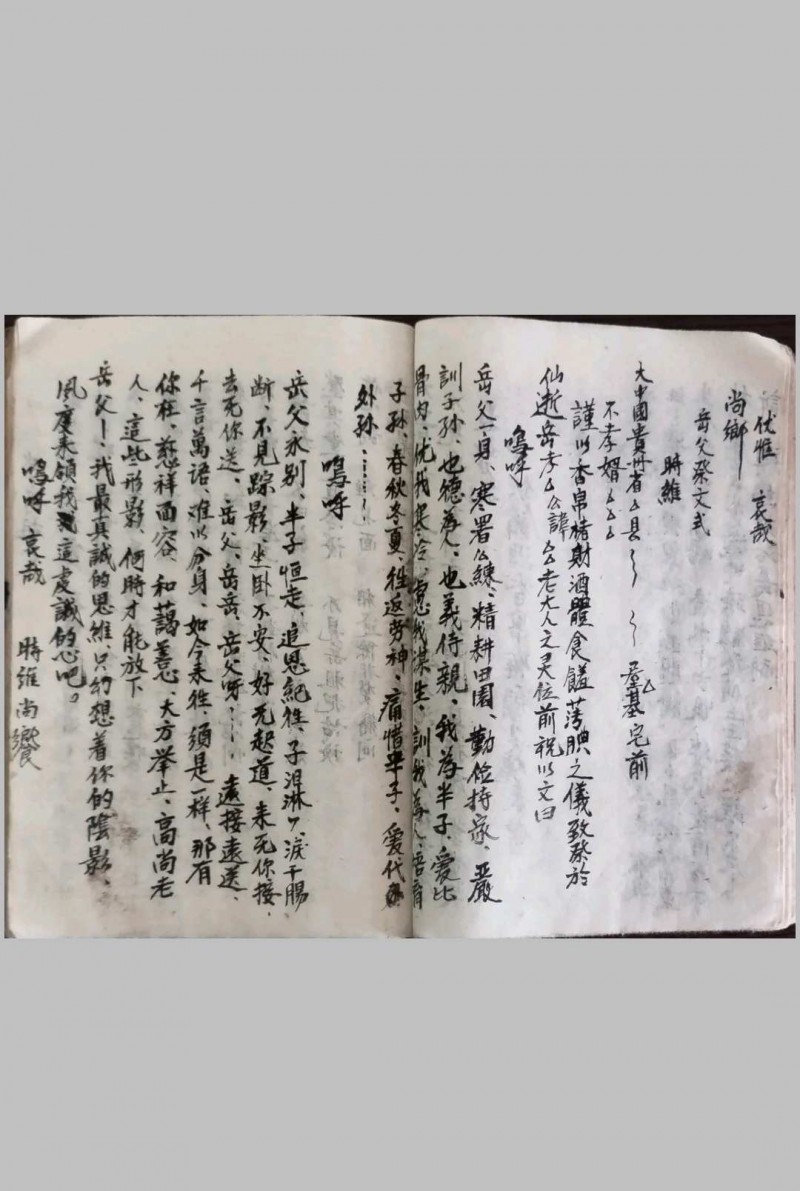 优惟 哀哉
尚鄉
岳父祭文式
時維
大中國貴州省厶縣 基宅前
不孝婿厶厶厶
謹以香帛楮財酒醴食饈薄腆之儀致祭於
仙逝岳考厶公諱厶厶老大人之灵位前祝以文曰
嗚呼
岳父一身、寒署公練、精耕田園、勤俭持家、嚴
訓子孫、也德為人、也義侍親、我為半子、愛比
骨肉、优我寒冷、慮我谋生、訓我為人、培育
子孫、春秋冬夏、往返劳神、痛惜半子、愛代
外孫、……！
嗚呼
岳父永别、半子恒走、追思紀往、子泪淋々、淚干腸
断、不見踪影、坐卧不安、好无起道、来无你接、
去无你送、岳父、岳岳、岳父呀……、遠接遠送、
千言萬語、难以分身、如今来往、须是一样、那有
你在、慈祥面容、和藹善心、大方举止、高尚老
人、這些形影、何時才能放下
岳父！、我最真誠的思維、只幻想着你的陰影、
风度来领我這虔誠的心吧。
嗚呼 哀哉 時維 尚饗